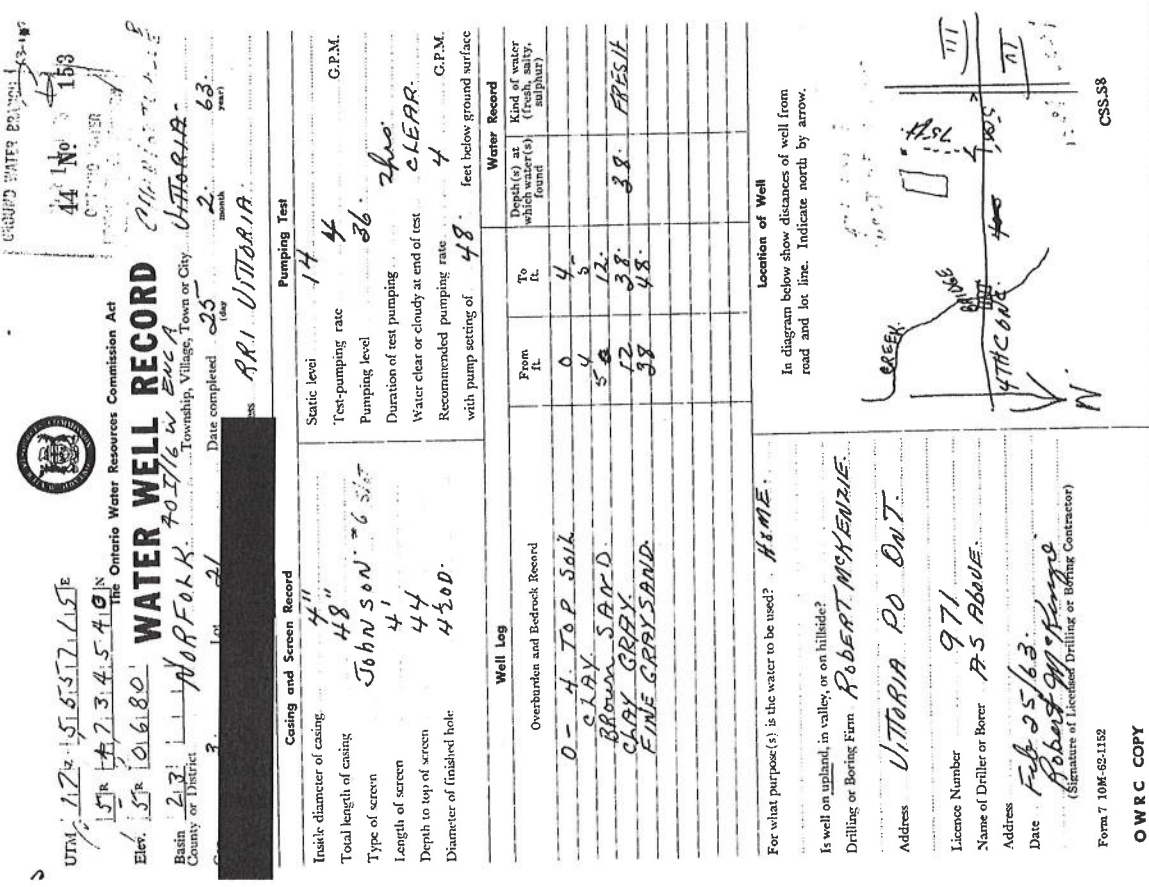 GROUND WATER BRANCH
44 No 153
UTM 17 Z 5 5 5 7 1 5 E
5 R 4 7 3 4 5 4 0 N
The Ontario Water Resources Commission Act
Elev. 5 R 0 6 8 0
WATER WELL RECORD
Basin 2 3
40 I/16 W
County or District NORFOLK
Township, Village, Town or City VITTORIA-
3. Lot 21 Date completed 25 2. 63
(day month year)
ess RR.1 VITTORIA.
Casing and Screen Record
Inside diameter of casing 4"
Total length of casing 48"
Type of screen JOHNSON. #6 SLOT
Length of screen 4'
Depth to top of screen 44
Diameter of finished hole 4½OD.
Pumping Test
Static level 14
Test-pumping rate 4 G.P.M.
Pumping level 36.
Duration of test pumping 2hrs.
Water clear or cloudy at end of test CLEAR.
Recommended pumping rate 4 G.P.M.
with pump setting of 48. feet below ground surface
Well Log
Water Record
Overburden and Bedrock Record From ft. To ft. Depth(s) at which water(s) found Kind of water (fresh, salty, sulphur)
0 - 4. TOP SOIL 0 4
CLAY 4 5
BROWN SAND 5 12. 38. FRESH
CLAY GRAY 12 38.
FINE GRAY SAND. 38 48.
For what purpose(s) is the water to be used? HOME.
Is well on upland, in valley, or on hillside?
Drilling or Boring Firm ROBERT MCKENZIE.
Address VITTORIA PO ONT.
Licence Number 971
Name of Driller or Borer AS ABOVE.
Address
Date Feb 25/63.
Robert McKenzie
(Signature of Licensed Drilling or Boring Contractor)
Form 7 10M-62-1152
OWRC COPY
Location of Well
In diagram below show distances of well from
road and lot line. Indicate north by arrow.
CREEK.
BRIDGE
75 ft
4TH CONC.
III
N
CSS.S8